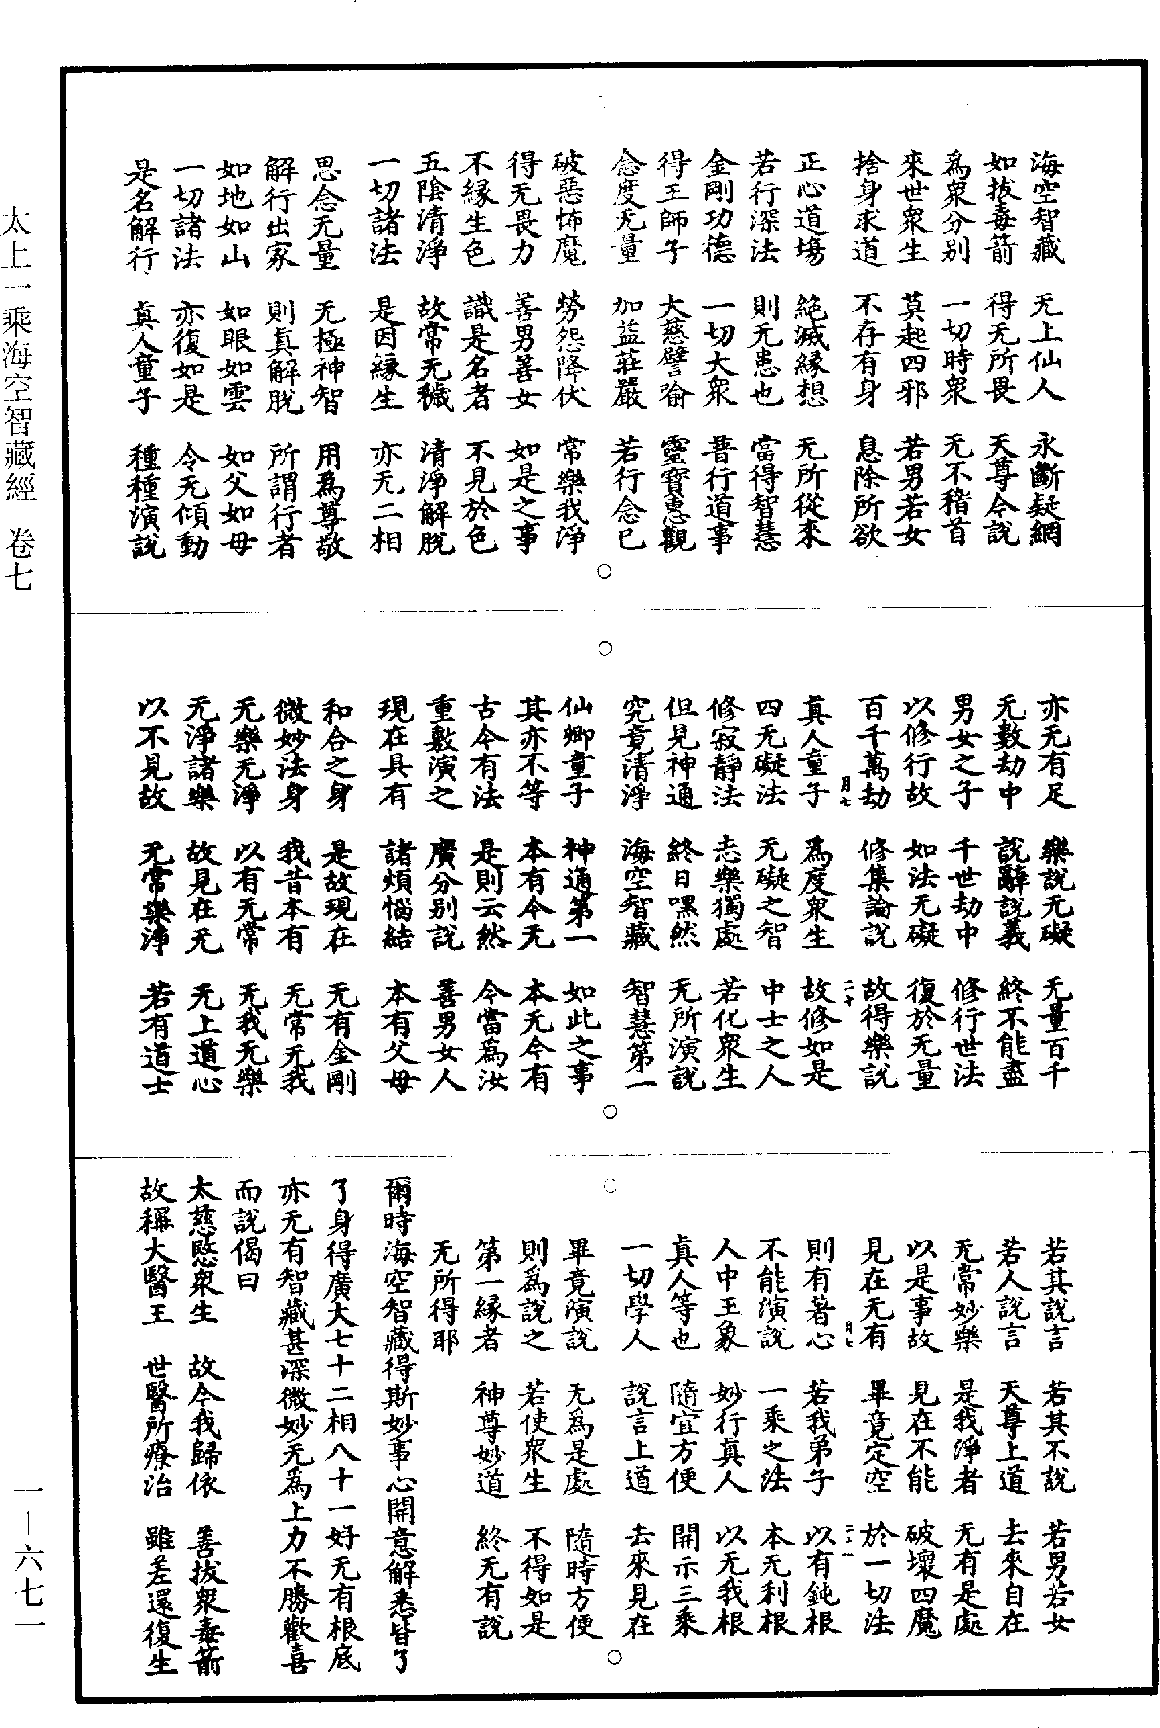 太上一乘海空智藏經 卷七
海空智藏 无上仙人 永斷疑網
如拔毒箭 得无所畏 天尊今說
爲衆分别 一切時衆 无不稽首
來世衆生 莫起四邪 若男若女
捨身求道 不存有身 息除所欲
正心道場 絶滅緣想 无所從來
若行深法 則无恚也 當得智慧
金剛功德 一切大衆 普行道事
得王師子 大慈譬喻 靈寶惠觀
念度无量 加益莊嚴 若行念已
破惡怖魔 勞怨降伏 常樂我淨
得无畏力 善男善女 如是之事
不緣生色 識是名者 不見於色
五陰清淨 故常无穢 清淨解脫
一切諸法 是因緣生 亦无二相
思念无量 无極神智 用爲尊敬
解行出家 則真解脫 所謂行者
如地如山 如眼如雲 如父如母
一切諸法 亦復如是 令无傾動
是名解行 真人童子 種種演說
亦无有足 樂說无礙 无量百千
无數劫中 說辭說義 終不能盡
男女之子 千世劫中 修行世法
以修行故 如法无礙 復於无量
百千萬劫 修集論說 故得樂說
月七 二十
真人童子 爲度衆生 故修如是
四无礙法 无礙之智 中士之人
修寂靜法 志樂獨處 若化衆生
但見神通 終日嘿然 无所演說
究竟清淨 海空智藏 智慧第一
仙卿童子 神通第一 如此之事
其亦不等 本有今无 本无今有
古今有法 是則云然 今當爲汝
重敷演之 廣分别說 善男女人
現在具有 諸煩惱結 本有父母
和合之身 是故現在 无有金剛
微妙法身 我昔本有 无常无我
无樂无淨 以有无常 无我无樂
无淨諸樂 故見在无 无上道心
以不見故 无常樂淨 若有道士
若其說言 若其不說 若男若女
若人說言 天尊上道 去來自在
无常妙樂 是我淨者 无有是處
以是事故 見在不能 破壞四魔
見在无有 畢竟定空 於一切法
月七 二一
則有著心 若我弟子 以有鈍根
不能演說 一乘之法 本无利根
人中王象 妙行真人 以无我根
真人等也 隨宜方便 開示三乘
一切學人 說言上道 去來見在
畢竟演說 无爲是處 隨時方便
則爲說之 若使衆生 不得如是
第一緣者 神尊妙道 終无有說
无所得耶
爾時海空智藏得斯妙事心開意解悉皆了
了身得廣大七十二相八十一好无有根底
亦无有智藏甚深微妙无爲上力不勝歡喜
而說偈曰
太慈愍衆生 故今我歸依 善拔衆毒箭
故稱大醫王 世醫所療治 雖差還復生
一-六七一